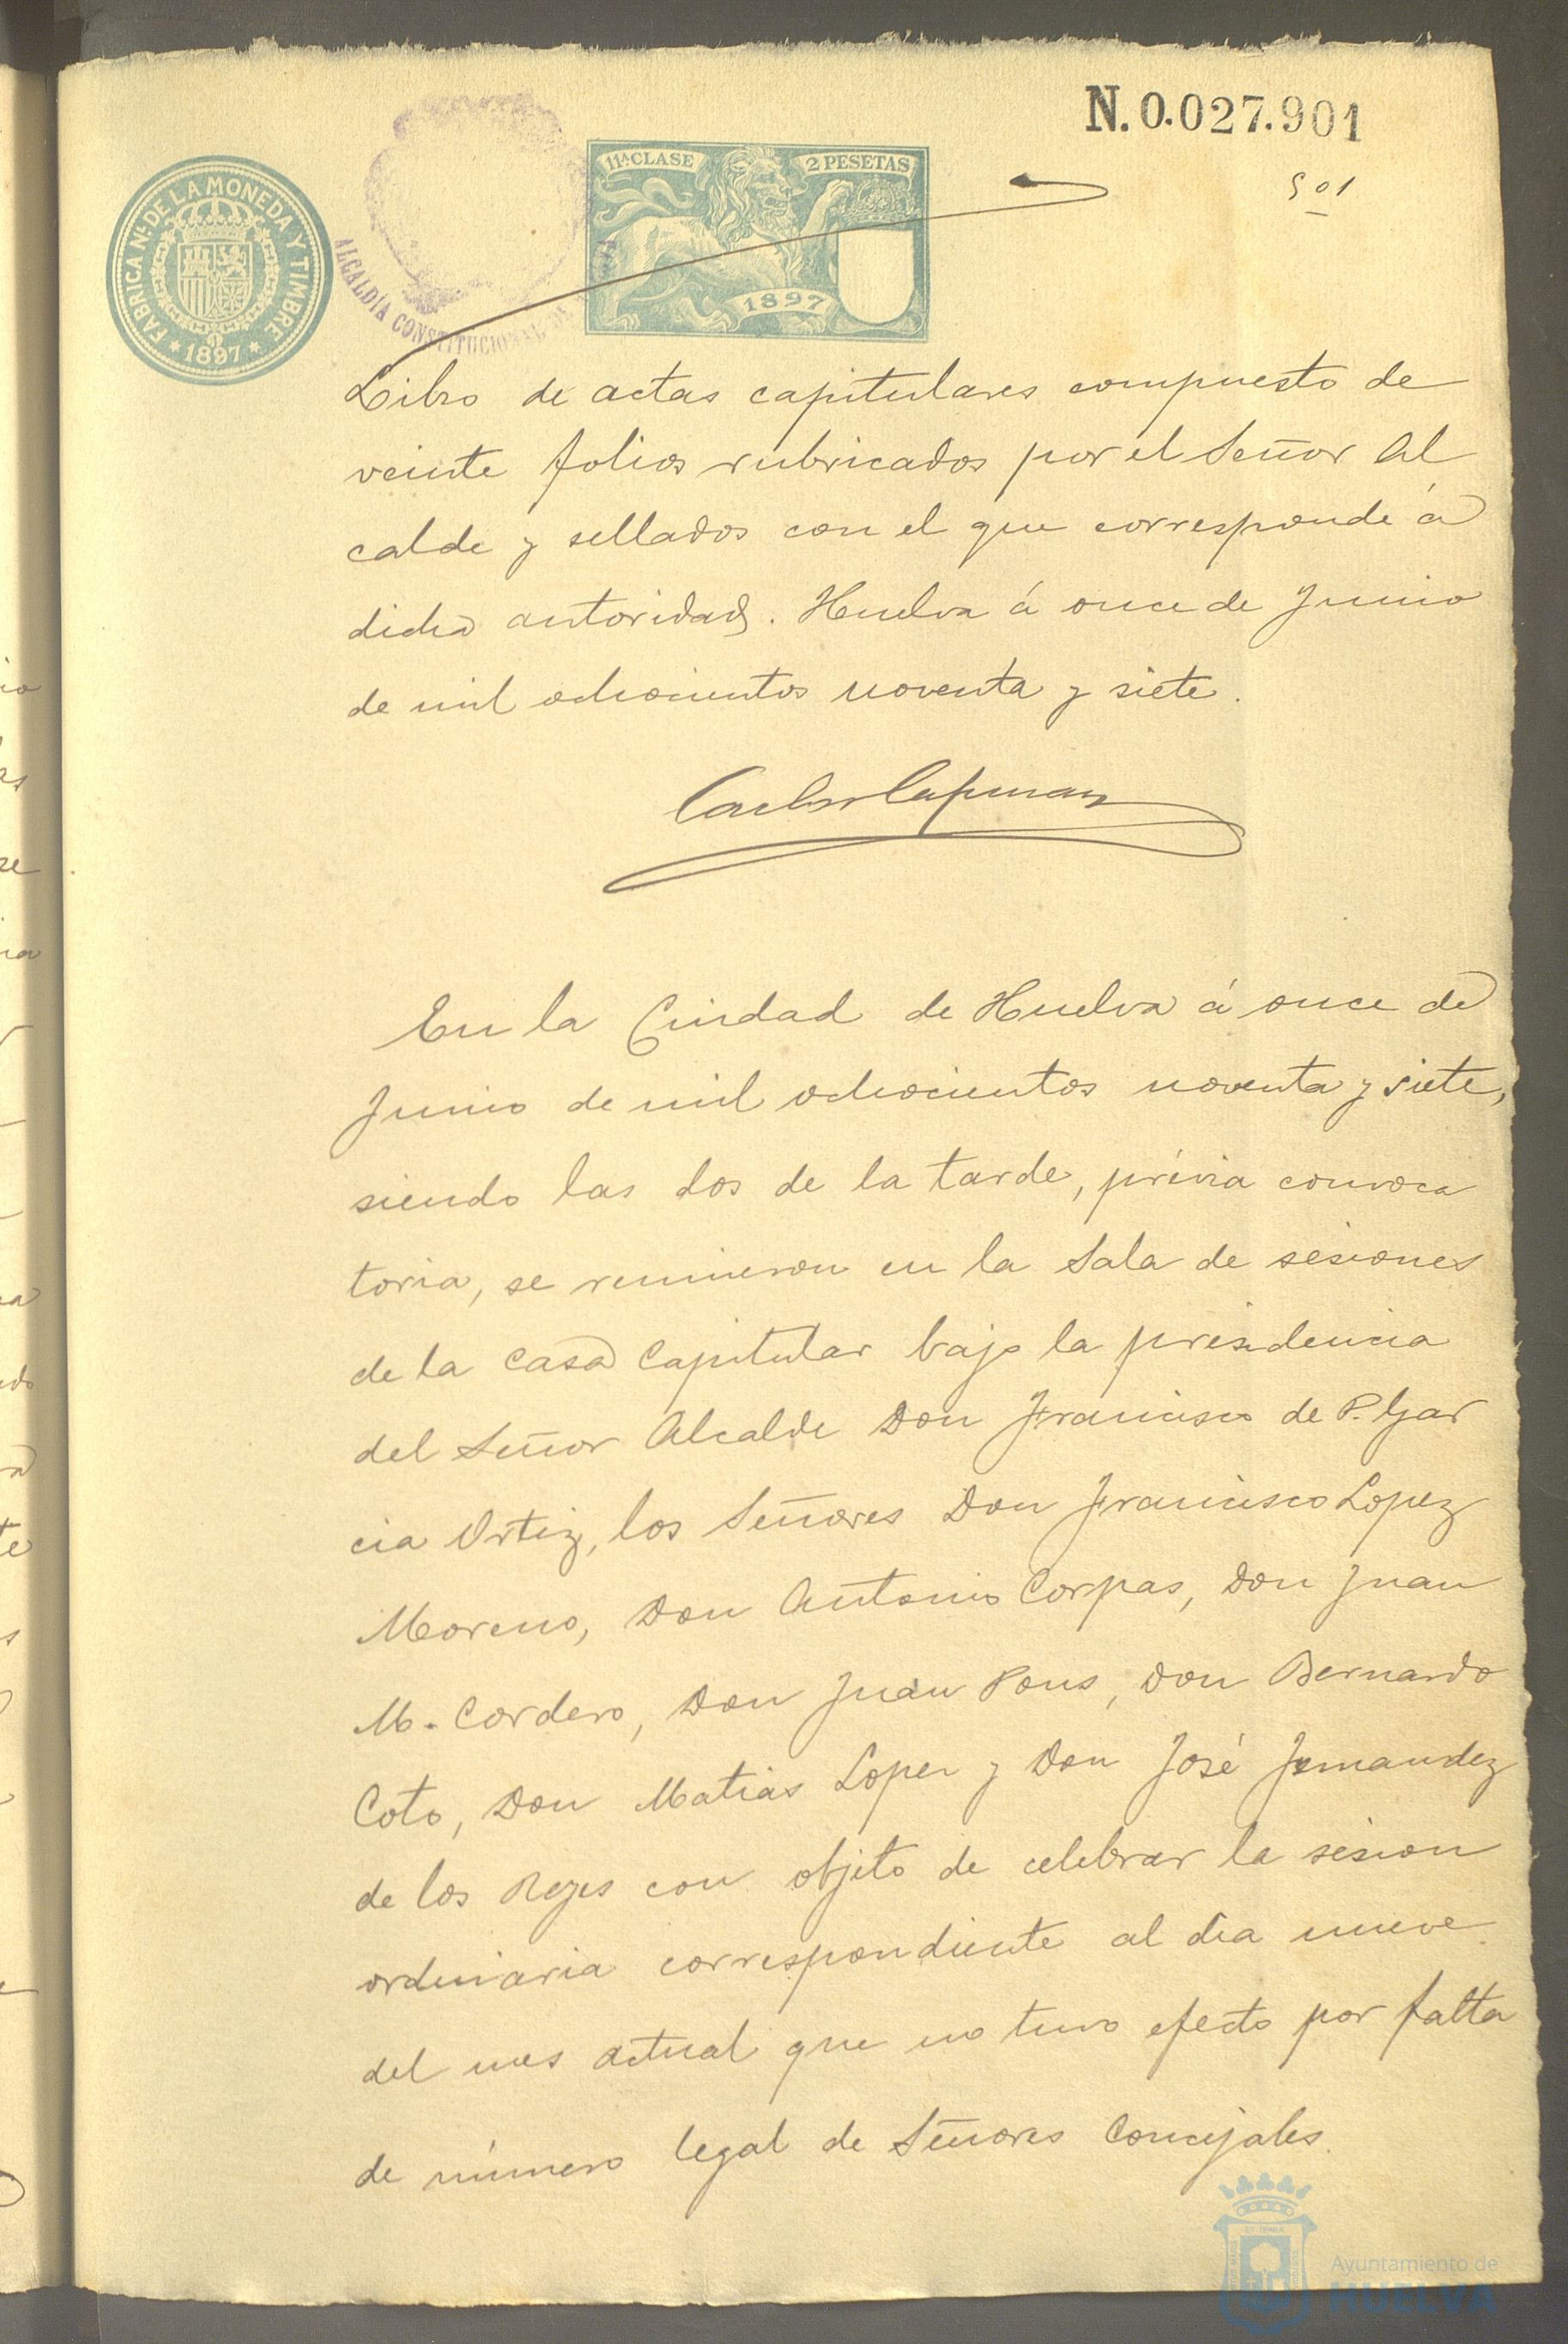 N. 0.027.901
501
11ª CLASE
2 PESETAS
1897
FABRICA Nª DE LA MONEDA Y TIMBRE
* 1897 *
ALCALDIA CONSTITUCIONAL DE
Libro de actas capitulares compuesto de
veinte folios rubricados por el Señor Al
calde y sellados con el que corresponde á
dicha autoridad. Huelva á once de Junio
de mil ochocientos noventa y siete.
En la Ciudad de Huelva á once de
Junio de mil ochocientos noventa y siete,
siendo las dos de la tarde, prévia convoca
toria, se reunieron en la Sala de sesiones
de la Casa Capitular bajo la presidencia
del Señor Alcalde Don Francisco de P. Gar
cia Ortiz, los Señores Don Francisco Lopez
Moreno, Don Antonio Corpas, Don Juan
M. Cordero, Don Juan Pons, Don Bernardo
Coto, Don Matias Lopez y Don José Fernandez
de los Reyes con objeto de celebrar la sesion
ordinaria correspondiente al dia nueve
del mes actual que no tuvo efecto por falta
de número legal de Señores Concejales.
Ayuntamiento de
HUELVA